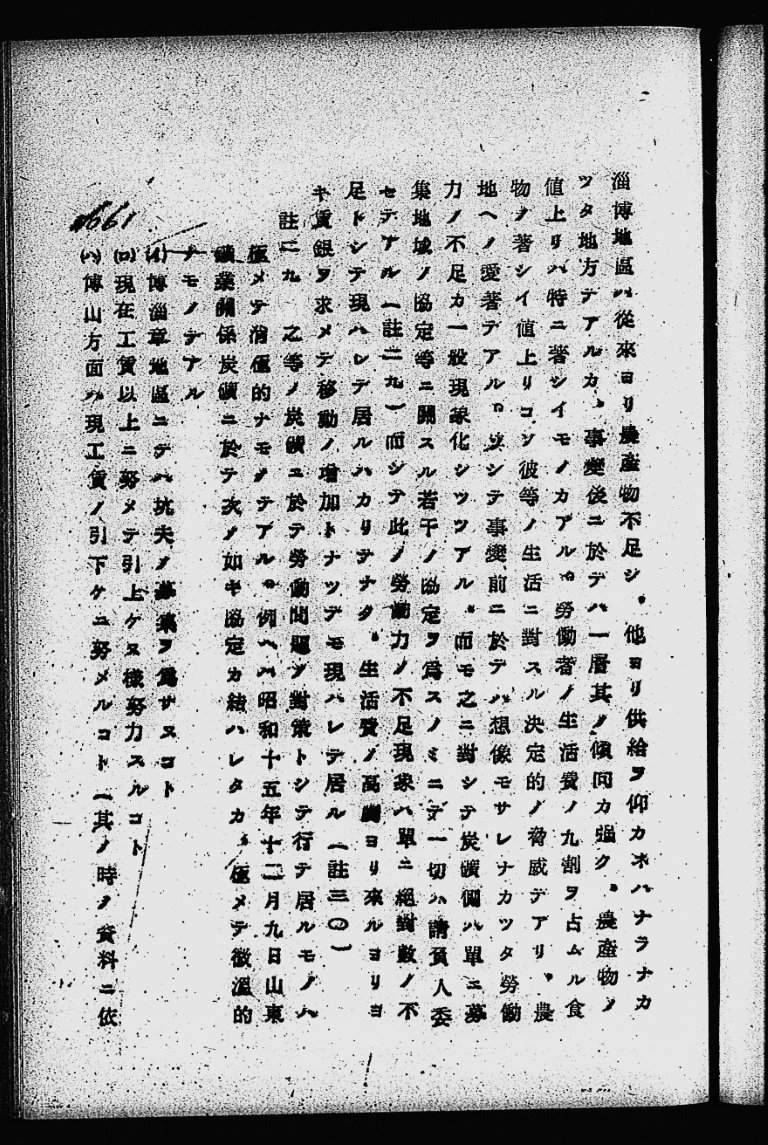 淄博地區ハ從來ヨリ農產物不足シ、他ヨリ供給ヲ仰カネハナラナカ
ツタ地方テアルカ、事變後ニ於テハ一層其ノ傾向カ强ク、農產物ノ
値上リハ特ニ著シイモノカアル。勞働者ノ生活費ノ九割ヲ占ムル食
物ノ著シイ値上リコソ彼等ノ生活ニ對スル決定的ノ脅威テアリ、農
地ヘノ愛著テアル。ソシテ事變前ニ於テハ想像モサレナカツタ勞働
力ノ不足カ一般現象化シツツアル。而モ之ニ對シテ炭礦側ハ單ニ募
集地域ノ協定等ニ關スル若干ノ協定ヲ爲スノミニテ一切ハ請負人委
セテアル(註二九)而シテ此ノ勞働力ノ不足現象ハ單ニ絕對數ノ不
足トシテ現ハレテ居ルハカリテナク、生活費ノ高騰ヨリ來ルヨリヨ
キ賃銀ヲ求メテ移動ノ增加トナツテモ現ハレテ居ル(註三〇)
註二九 之等ノ炭礦ニ於テ勞働問題ノ對策トシテ行テ居ルモノハ
極メテ消極的ナモノテアル。例ヘハ昭和十五年十二月九日山東
礦業關係炭礦ニ於テ次ノ如キ協定カ結ハレタカ、極メテ微溫的
ナモノテアル
(イ)博淄章地區ニテハ抗夫ノ募集ヲ爲サヌコト
(ロ)現在工賃以上ニ努メテ引上ケヌ樣努力スルコト
(ハ)博山方面ハ現工賃ノ引下ケニ努メルコト(其ノ時ノ資料ニ依
1661